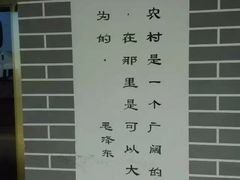 农村是一个广阔的
，在那里是可以大
为的。
毛泽东